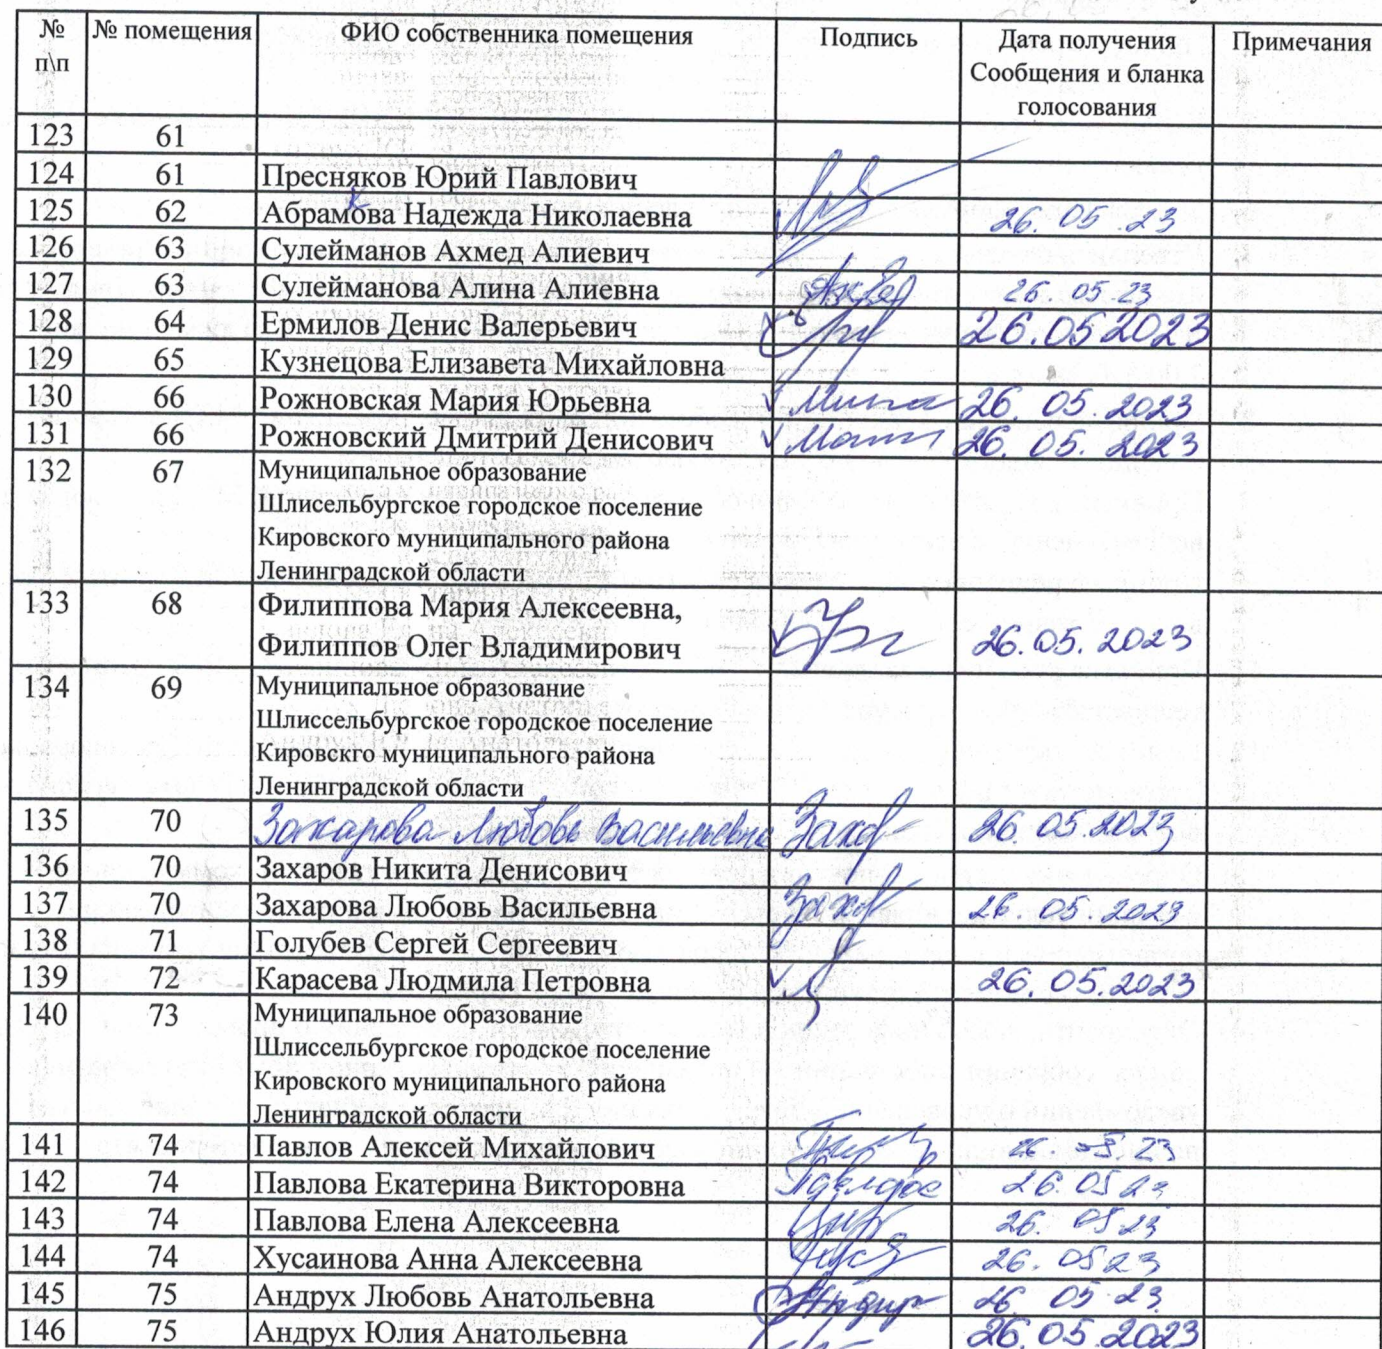 № п\п № помещения ФИО собственника помещения Подпись Дата получения Сообщения и бланка голосования Примечания
123 61
124 61 Пресняков Юрий Павлович
125 62 Абрамова Надежда Николаевна 26.05.23
126 63 Сулейманов Ахмед Алиевич
127 63 Сулейманова Алина Алиевна 26.05.23
128 64 Ермилов Денис Валерьевич 26.05.2023
129 65 Кузнецова Елизавета Михайловна
130 66 Рожновская Мария Юрьевна 26.05.2023
131 66 Рожновский Дмитрий Денисович 26.05.2023
132 67 Муниципальное образование
Шлисельбургское городское поселение
Кировского муниципального района
Ленинградской области
133 68 Филиппова Мария Алексеевна,
Филиппов Олег Владимирович 26.05.2023
134 69 Муниципальное образование
Шлиссельбургское городское поселение
Кировскго муниципального района
Ленинградской области
135 70 Захарова Любовь Васильевна Захар 26.05.2023
136 70 Захаров Никита Денисович
137 70 Захарова Любовь Васильевна Захар 26.05.2023
138 71 Голубев Сергей Сергеевич
139 72 Карасева Людмила Петровна 26.05.2023
140 73 Муниципальное образование
Шлиссельбургское городское поселение
Кировского муниципального района
Ленинградской области
141 74 Павлов Алексей Михайлович 26.05.23
142 74 Павлова Екатерина Викторовна 26.05.23
143 74 Павлова Елена Алексеевна 26.05.23
144 74 Хусаинова Анна Алексеевна 26.05.23
145 75 Андрух Любовь Анатольевна 26.05.23
146 75 Андрух Юлия Анатольевна 26.05.2023